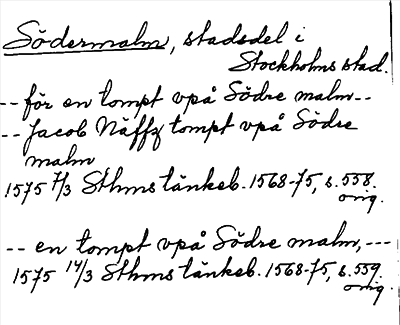 Södermalm, stadsdel i
Stockholms stad.
-- för en tompt vpå Södre malm --
-- Jacob Näffz tompt vpå Södre
malm
1575 7/3 Sthms tänkeb. 1568-75, s. 558.
orig.
-- en tompt vpå Södre malm, ---
1575 14/3 Sthms tänkeb. 1568-75, s. 559.
orig.